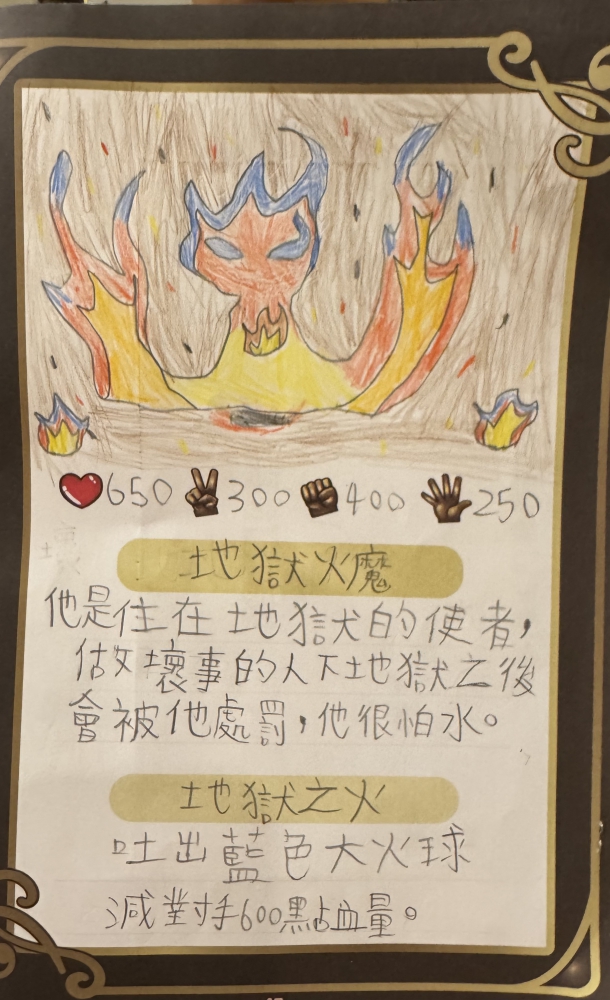 650 300 400 250
地獄火魔
他是住在地獄的使者，
做壞事的人下地獄之後
會被他處罰，他很怕水。
地獄之火
吐出藍色大火球
減對手600點血量。